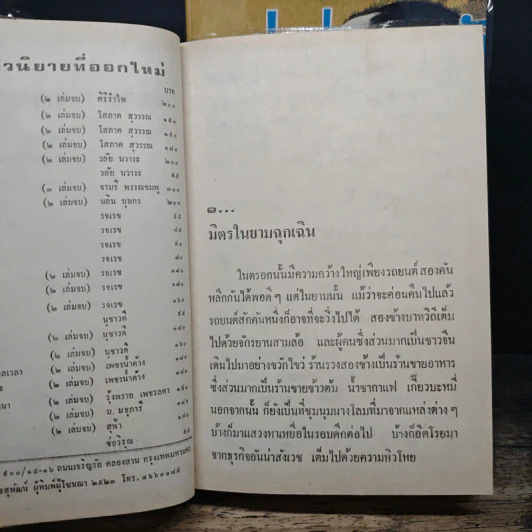 วนิยายที่ออกใหม่
บาท
(๒ เล่มจบ) ศิริรำไพ ๒๐๐
(๒ เล่มจบ) โสภาค สุวรรณ ๑๔๐
(๒ เล่มจบ) โสภาค สุวรรณ ๑๙๐
(๒ เล่มจบ) โสภาค สุวรรณ ๑๘๐
(๒ เล่มจบ) วลัย นวาระ ๒๐๐
วลัย นวาระ
(๓ เล่มจบ) จามรี พรรณชมพู ๓๐๐
(๒ เล่มจบ) นลิน บุษกร ๒๐๐
รจเรข
รจเรข
รจเรข
รจเรข
(๒ เล่มจบ) รจเรข ๑๘๐
(๒ เล่มจบ) รจเรข ๑๘๐
(๒ เล่มจบ) รจเรข ๑๖๐
นุชาวดี
(๒ เล่มจบ) นุชาวดี
(๒ เล่มจบ) นุชาวดี
(๒ เล่มจบ) เพชรน้ำค้าง
(๒ เล่มจบ) เพชรน้ำค้าง ๑๘๐
(๒ เล่มจบ) รุ้งพราย เพชรลดา
(๒ เล่มจบ) ม. มธุการี
(๒ เล่มจบ) สุฟ้า
ชุ่อิรุณ
๕๐๐/๑๔-๑๖ ถนนเจริญรัถ คลองสาน กรุงเทพมหานคร
สุพัฒน์ ผู้พิมพ์ผู้โฆษณา ๒๕๒๓ โทร. ๔๖๖๐๐๘๕
๑...
มิตรในยามฉุกเฉิน
ในตรอกนั้นมีความกว้างใหญ่เพียงรถยนต์ สองคัน
หลีกกันได้พอดี ๆ แต่ในยามนั้น แม้ว่าจะค่อนคืนไปแล้ว
รถยนต์สักคันหนึ่งก็อาจที่จะวิ่งไปได้ สองข้างบาทวิถีเต็ม
ไปด้วยจักรยานสามล้อ และผู้คนซึ่งส่วนมากเป็นชาวจีน
เดินไปมาอย่างขวักไขว่ ร้านรวงสองข้างเป็นร้านขายอาหาร
ซึ่งส่วนมากเป็นร้านขายข้าวต้ม น้ำชากาแฟ เกี๊ยวบะหมี่
นอกจากนั้น ก็ยังเป็นที่ชุมนุมนางโลมที่มาจากแหล่งต่าง ๆ
บ้างก็มาแสวงหาเหยื่อในรอบดึกต่อไป บ้างก็อิดโรยมา
จากธุรกิจอันน่าสังเวช เต็มไปด้วยความหิวโหย